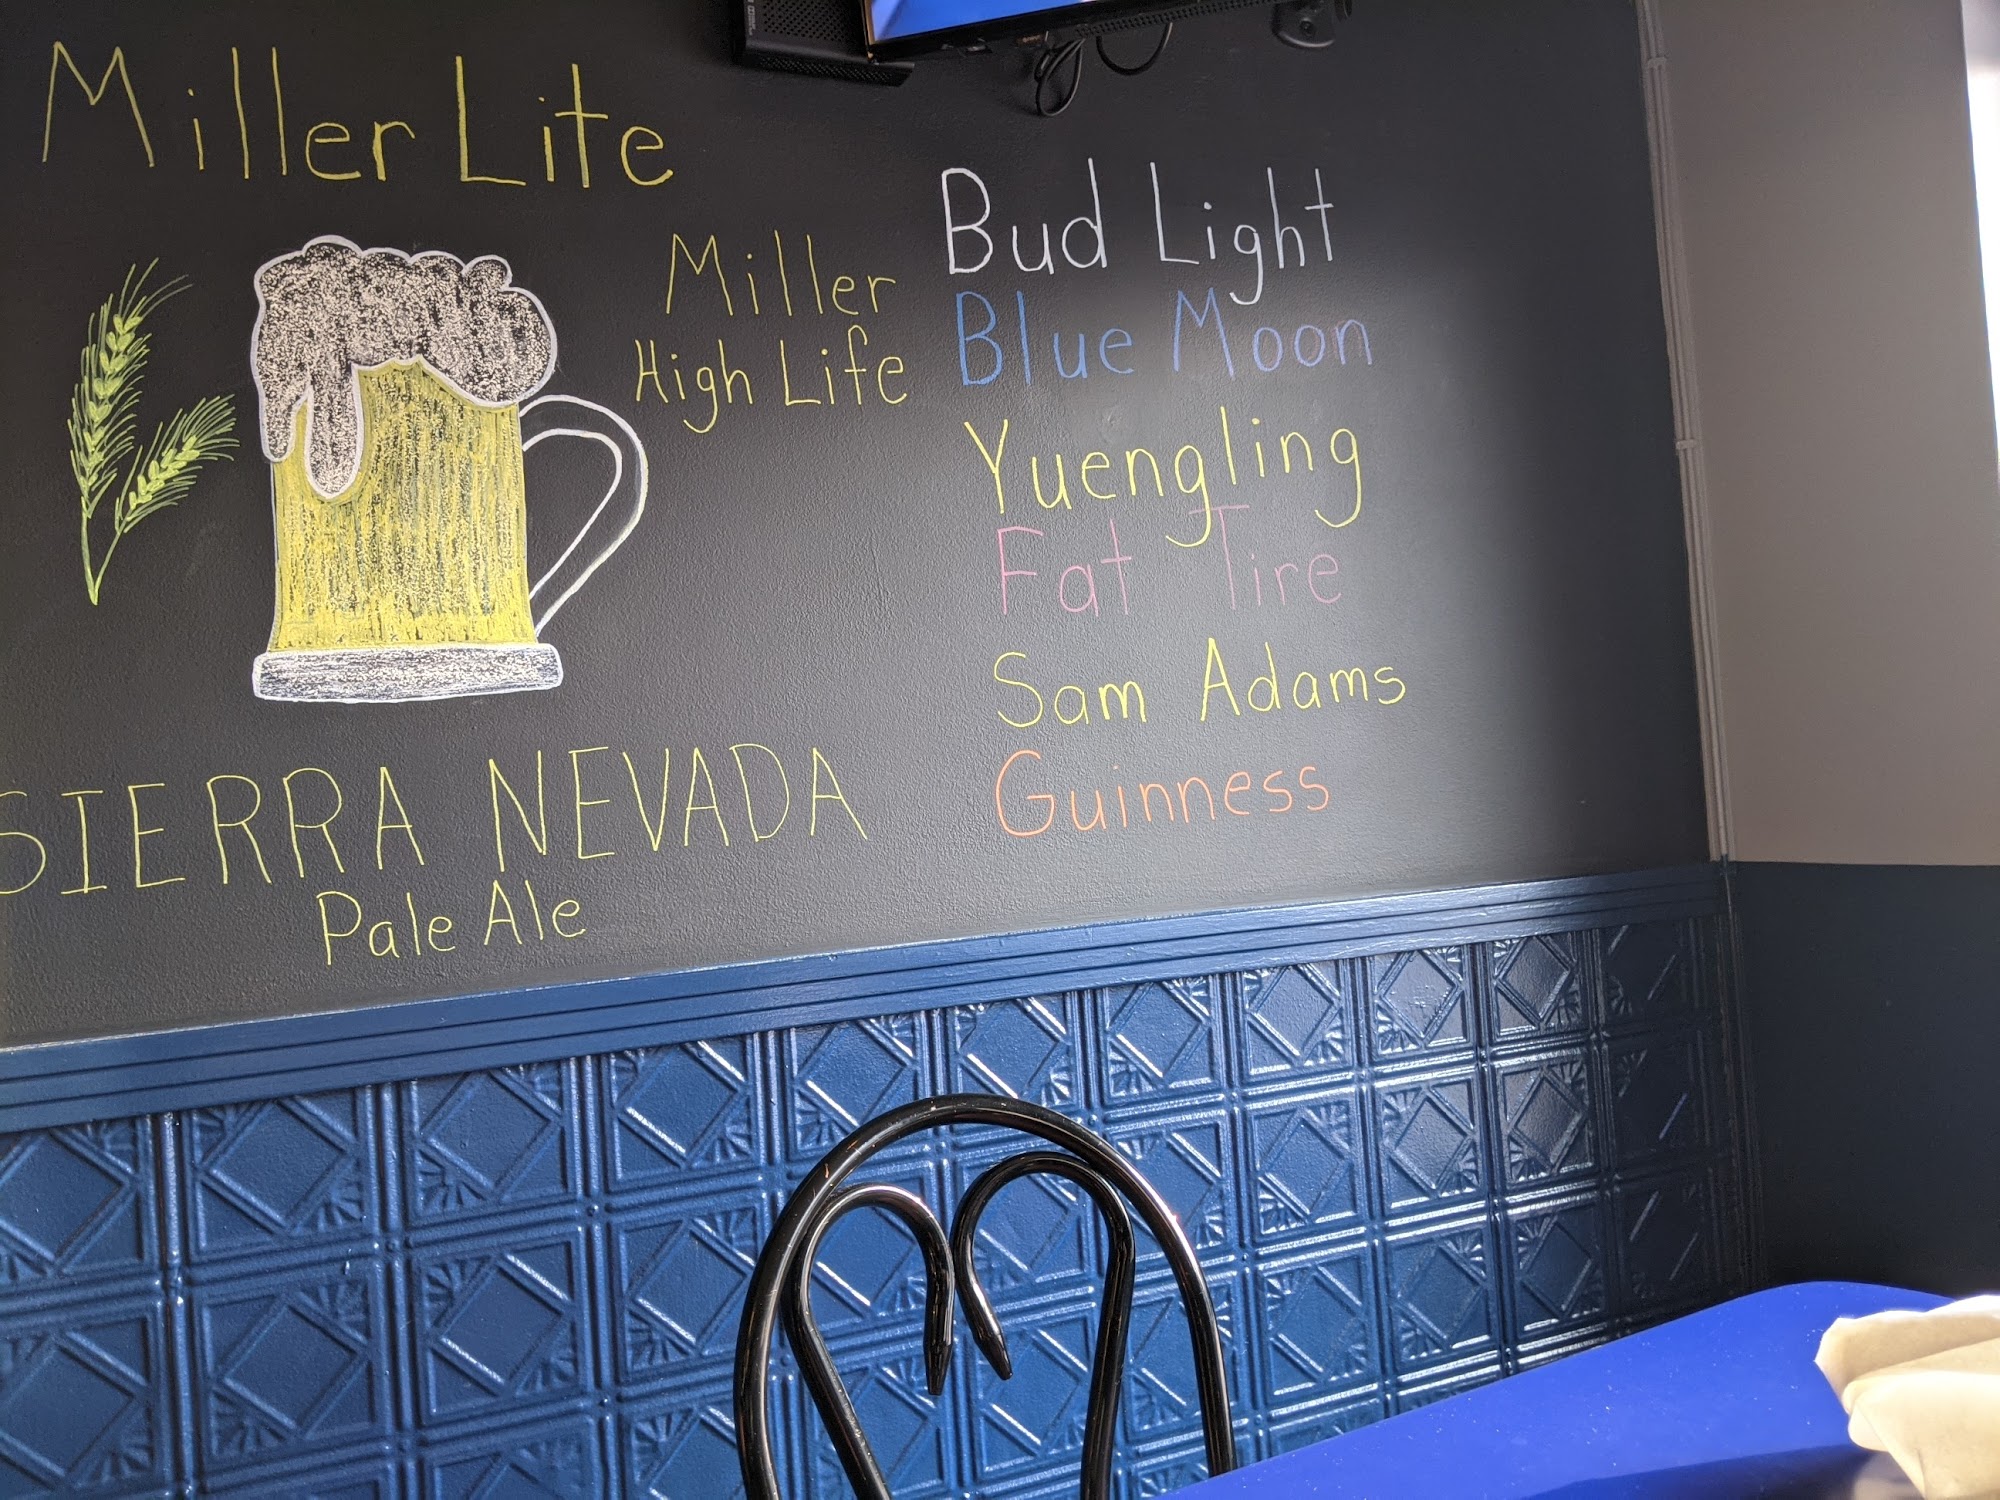 Miller Lite
Miller
High Life
SIERRA NEVADA
Pale Ale
Bud Light
Blue Moon
Yuengling
Fat Tire
Sam Adams
Guinness